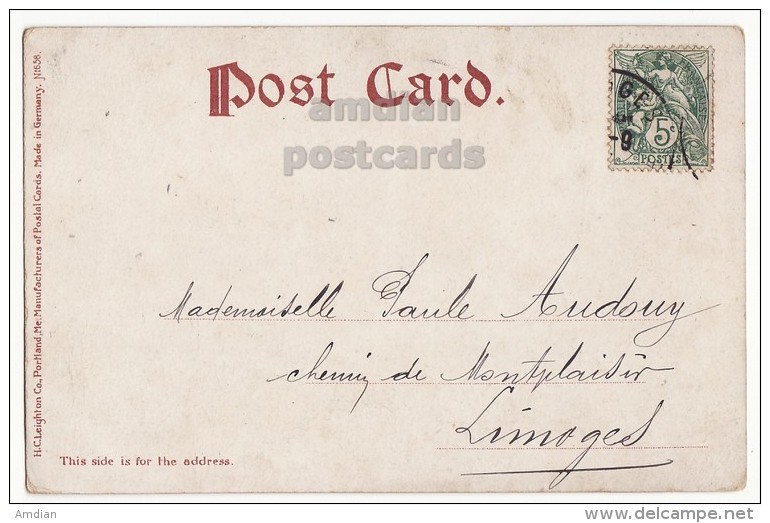 Post Card.
amdian
postcards
5c
POSTES
Mademoiselle Paule Audouy
chemin de Montplaisir
Limoges
This side is for the address.
H.C. Leighton Co., Portland, Me. Manufacturers of Postal Cards. Made in Germany. No 656.
Amdian
www.delcampe.net